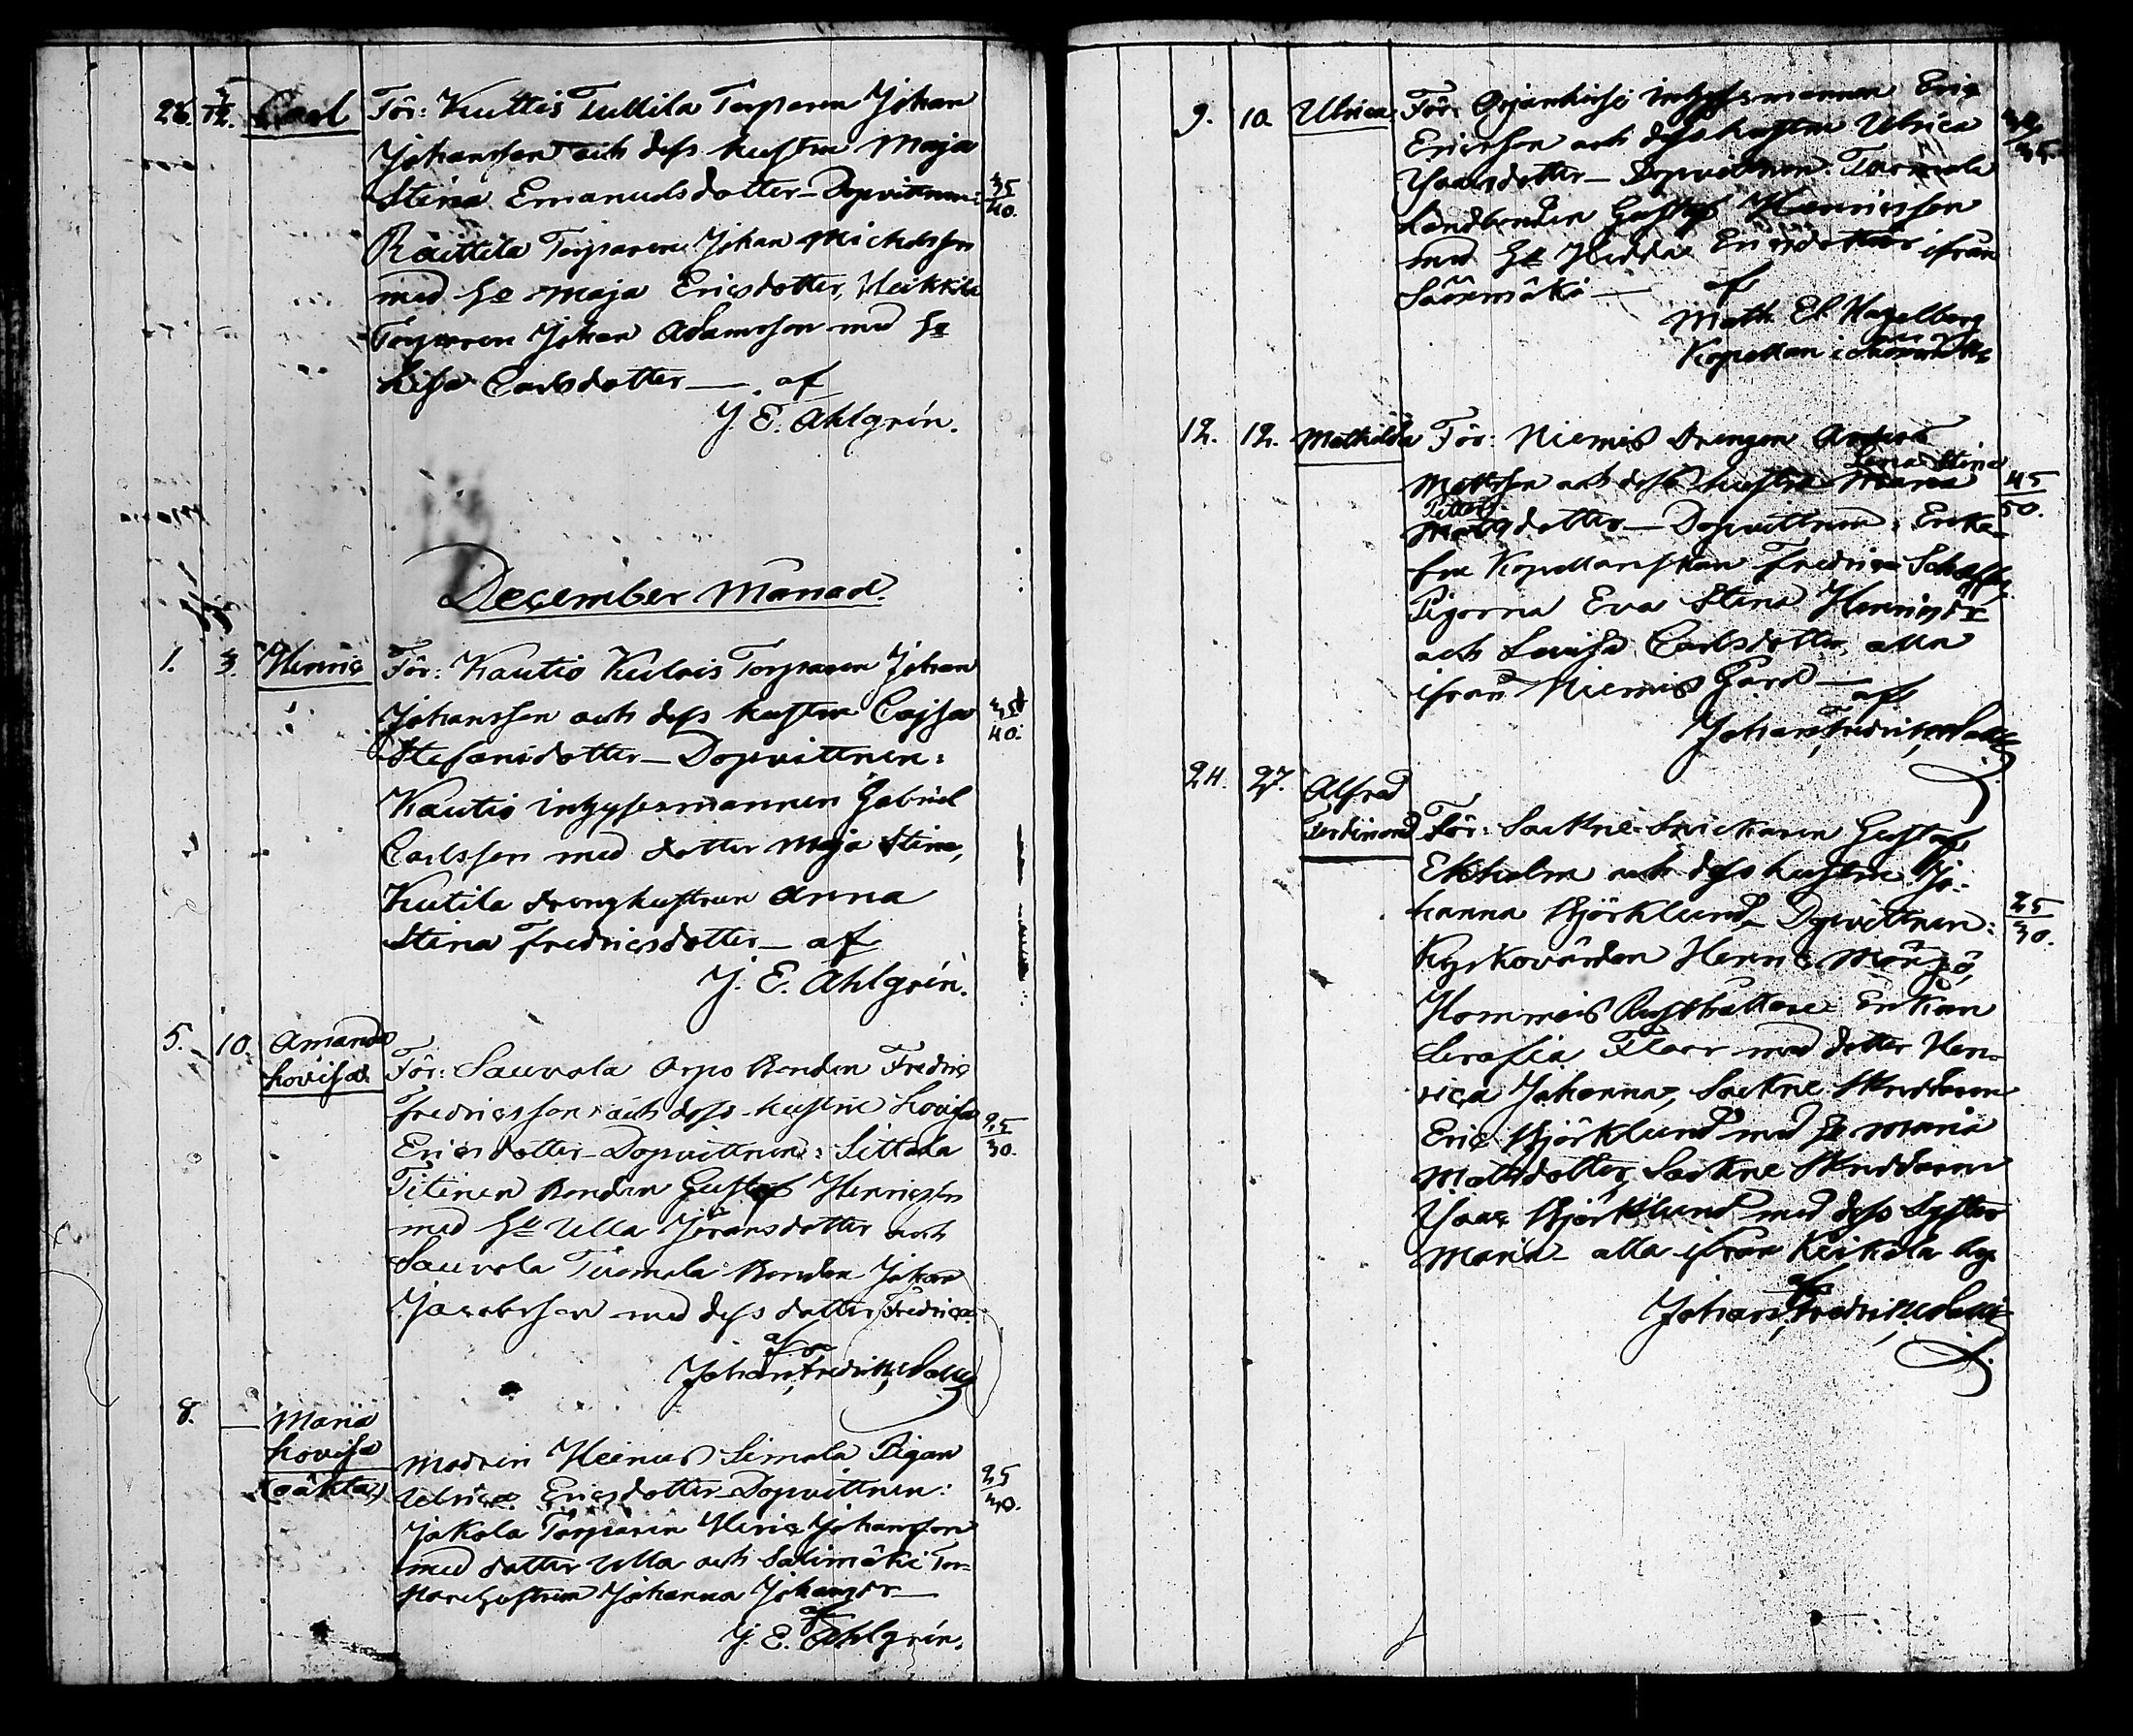 26. 2/12. Carl För: Kuttis Tullila Torparen Johan
Johansson och dess hustru Maja
Stina Emanuelsdotter – Dopvittnen: 35/40.
Räittilä Torparen Johan Michelsson
med he Maja Ericsdotter, Heikkilä
Torparen Johan Adamsson med he
Lisa Carlsdotter – af
J. E. Ahlgrén.
December Månad.
1. 3. Henric För: Kautio Kulvis Torparen Johan
Johansson och dess hustru Cajsa 35/40.
Stefansdotter – Dopvittnen:
Kautio inhysesmannen Gabriel
Carlsson med dotter Maja Stina,
Kutila drenghustrun Anna
Stina Fredricsdotter – af
J. E. Ahlgrén.
5. 10. Amanda
Lovisa För: Sauvola Arpo Bonden Fredric
Fredricsson och dess hustru Lovisa
Ericsdotter – Dopvittnen: Sittala 25/30.
Titinen Bonden Gustaf Henricsson
med he Ulla Jöransdotter och
Sauvola Tuomola Bonden Johan
Jacobsson med dess dotter Fredrica
af
Johan Fredrik
8. – Maria
Lovisa
(oäkta) Modren Heinus Simola Pigan
Ulrica Ericsdotter – Dopvittnen: 25/30.
Jakola Torparen Henric Johansson
med dotter Ulla och Salimäki Tor=
parehustrun Johanna Johansdr –
af
J. E. Ahlgrén.
9. 10. Ulrica För: inhysesmannen Eric
Ericsson och dess hustru Ulrica 30/35.
Isaacsdotter – Dopvittnen: Tuomola
Landbonden Gustaf Henricsson
med he Hedda Ericsdotter ifrån
Säärmäki – af
Math. El. Hagelberg
Kapellan i
12. 12. Mathilda För: Niemis Drengen Anders
Lena Stina
Mattsson och dess hustru Maria 45/50.
Petters
Matsdotter – Dopvittnen: Enke=
fru Kapellanskan Fredrica
Pigorna Eva Stina Henricsdr
och Lovisa Carlsdotter, alla
ifrån Niemis Gård –
af
Johan Fredrik
24. 27. Alfred
Ferdinand För: Sockne Snickaren Gustaf
Ekholm och dess hustru Jo=
hanna Björklund – Dopvittnen: 25/30.
Kyrkovärden Henric
Hommais Rusthållare Enkan
Serafia Floor med dotter Hen=
rica Johanna, Sockne Skreddaren
Eric Björklund med he Maria
Matsdotter, Sockne Skreddaren
Isaac Björklund med dess Syster
Maria – alla ifrån Keikelä by
af
Johan Fredrik